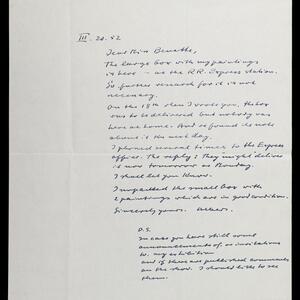 III. 20. 52
Dear Miss Benethe,
The large box with my paintings
is here - at the R.R. Express station.
So further research for it is not
necessary.
On the 18th when I wrote you, the box
was to be delivered but nobody was
here at home. And we found a note
about it the next day.
I phoned several times to the Express
office. The reply: They might deliver
it now tomorrow or Monday.
I shall let you know.
I unpacked the small box with
2 paintings which are in good condition.
Sincerely yours. Albers.
P.S.
In case you have still some
announcements of or invitations
to my exhibition
and if there are published comments
on the show. I should like to see
them.